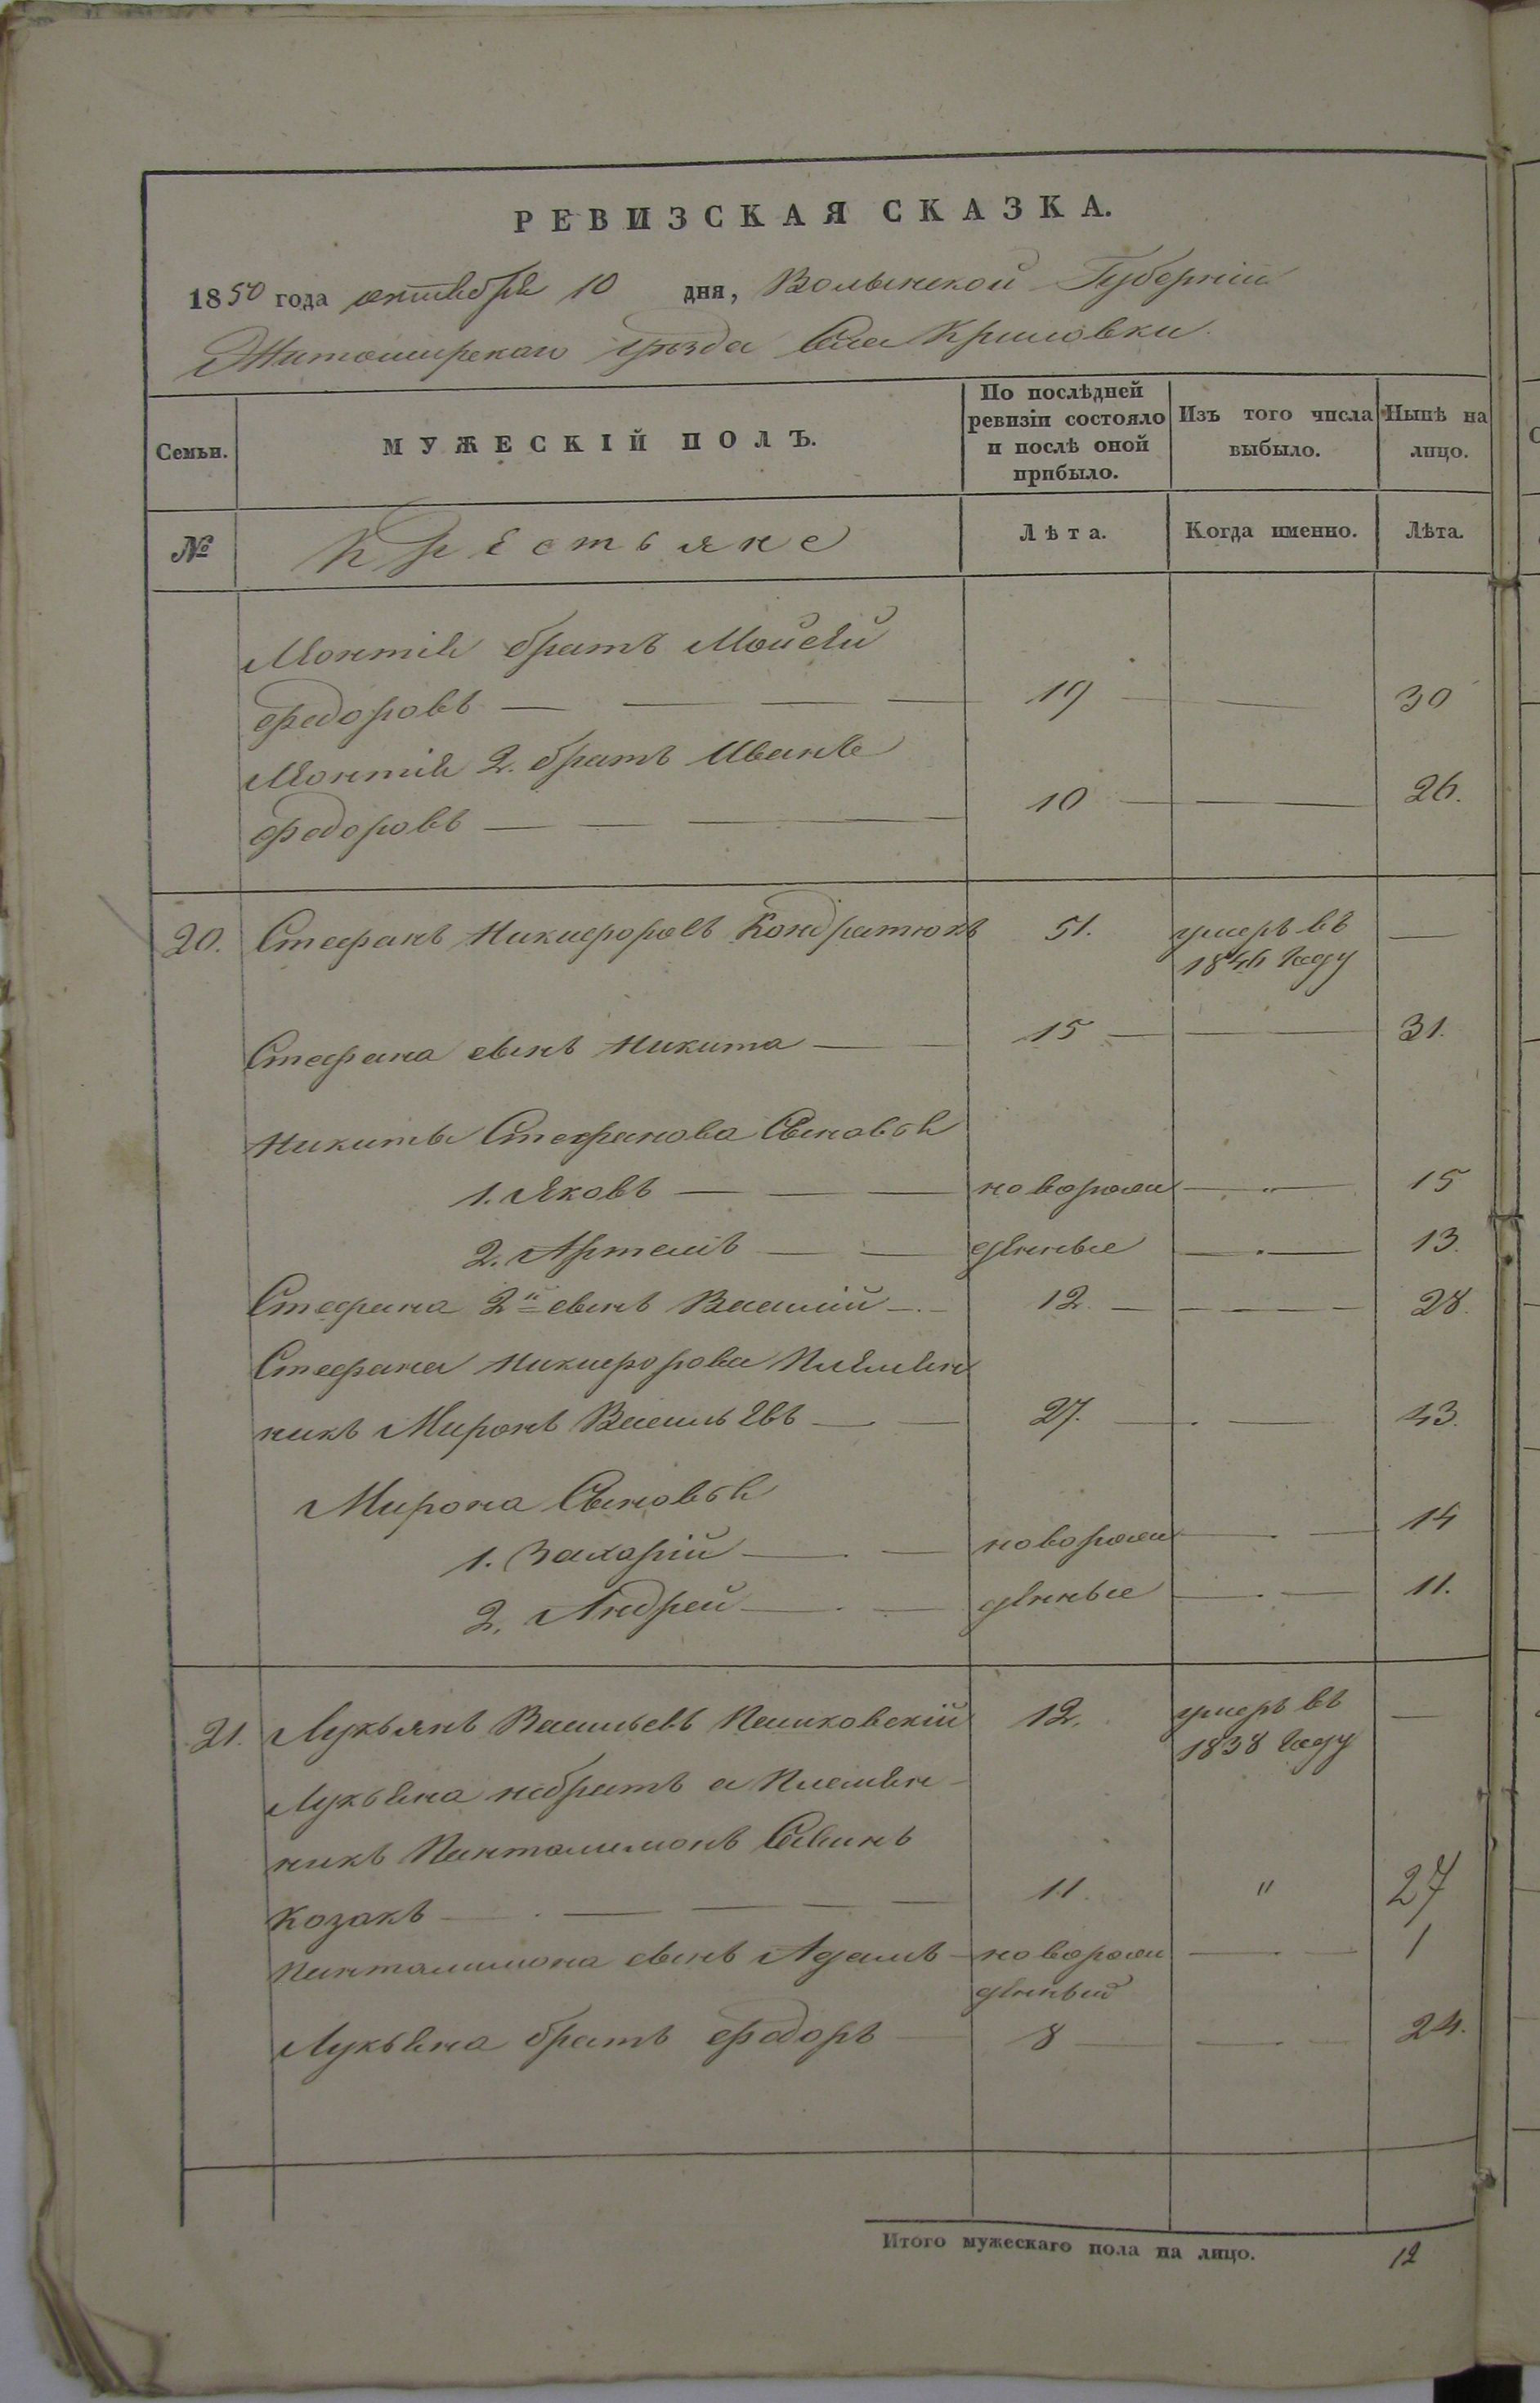 РЕВИЗСКАЯ СКАЗКА.
1850 года октября 10 дня, Волынской Губерніи
Житомирскаго уѣзда Села Криловки.
Семьи. МУЖЕСКІЙ ПОЛЪ. По послѣдней ревизіи состояло и послѣ оной прибыло. Изъ того числа выбыло. Нынѣ на лицо.
№ Крестьяне Лѣта. Когда именно. Лѣта.
братъ Мойсей
Федоровъ 19 30
2. братъ Иванъ
Федоровъ 10 26.
20. Стефанъ Никифоровъ Кондратюкъ 51. умеръ въ
1846 году
Стефана сынъ Никита 15 31.
Никиты Стефанова Сыновья
1. Яковъ новорож 15
2. Артемъ денные 13.
Стефана 2й сынъ Василій 12. 28.
Стефана Никифорова Племян
никъ Миронъ Васильевъ 27. 43.
Мирона Сыновья
1. Захарій новорож 14
2. Андрей денные 11.
21. Лукьянъ Васильевъ Пашковскій 12. умеръ въ
1838 году
Лукьяна небратъ а Племян-
никъ Панталимонъ Савинъ
Козакъ 11. " 27
Панталимона сынъ Адамъ новорож 1
денный
Лукьяна братъ Федоръ 8 24.
Итого мужескаго пола на лицо. 12